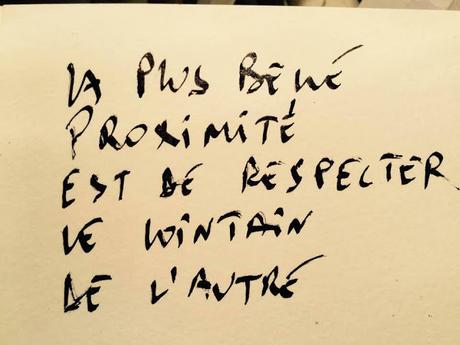 LA PLUS BELLE
PROXIMITÉ
EST DE RESPECTER
LE LOINTAIN
DE L'AUTRE